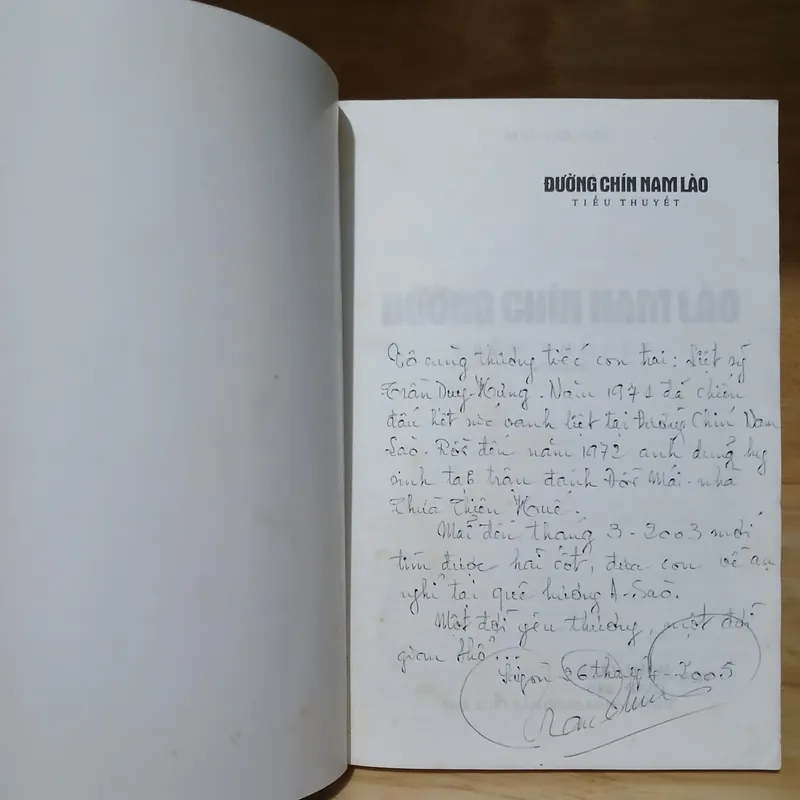 ĐƯỜNG CHÍN NAM LÀO
TIỂU THUYẾT
ĐƯỜNG CHÍN NAM LÀO
Vô cùng thương tiếc con trai: Liệt sỹ
Trần Duy-Hưng. Năm 1971 đã chiến
đấu hết sức oanh liệt tại Đường Chín Nam
Lào. Rồi đến năm 1972 anh dũng hy
sinh tại trận đánh Đồi Mái-nhà
Thừa Thiên Huế.
Mãi đến tháng 3-2003 mới
tìm được hài cốt, đưa con về an
nghỉ tại quê hương A-Sào.
Một đời yêu thương, một đời
gian khổ...
Sàigon 26 tháng 4-2005